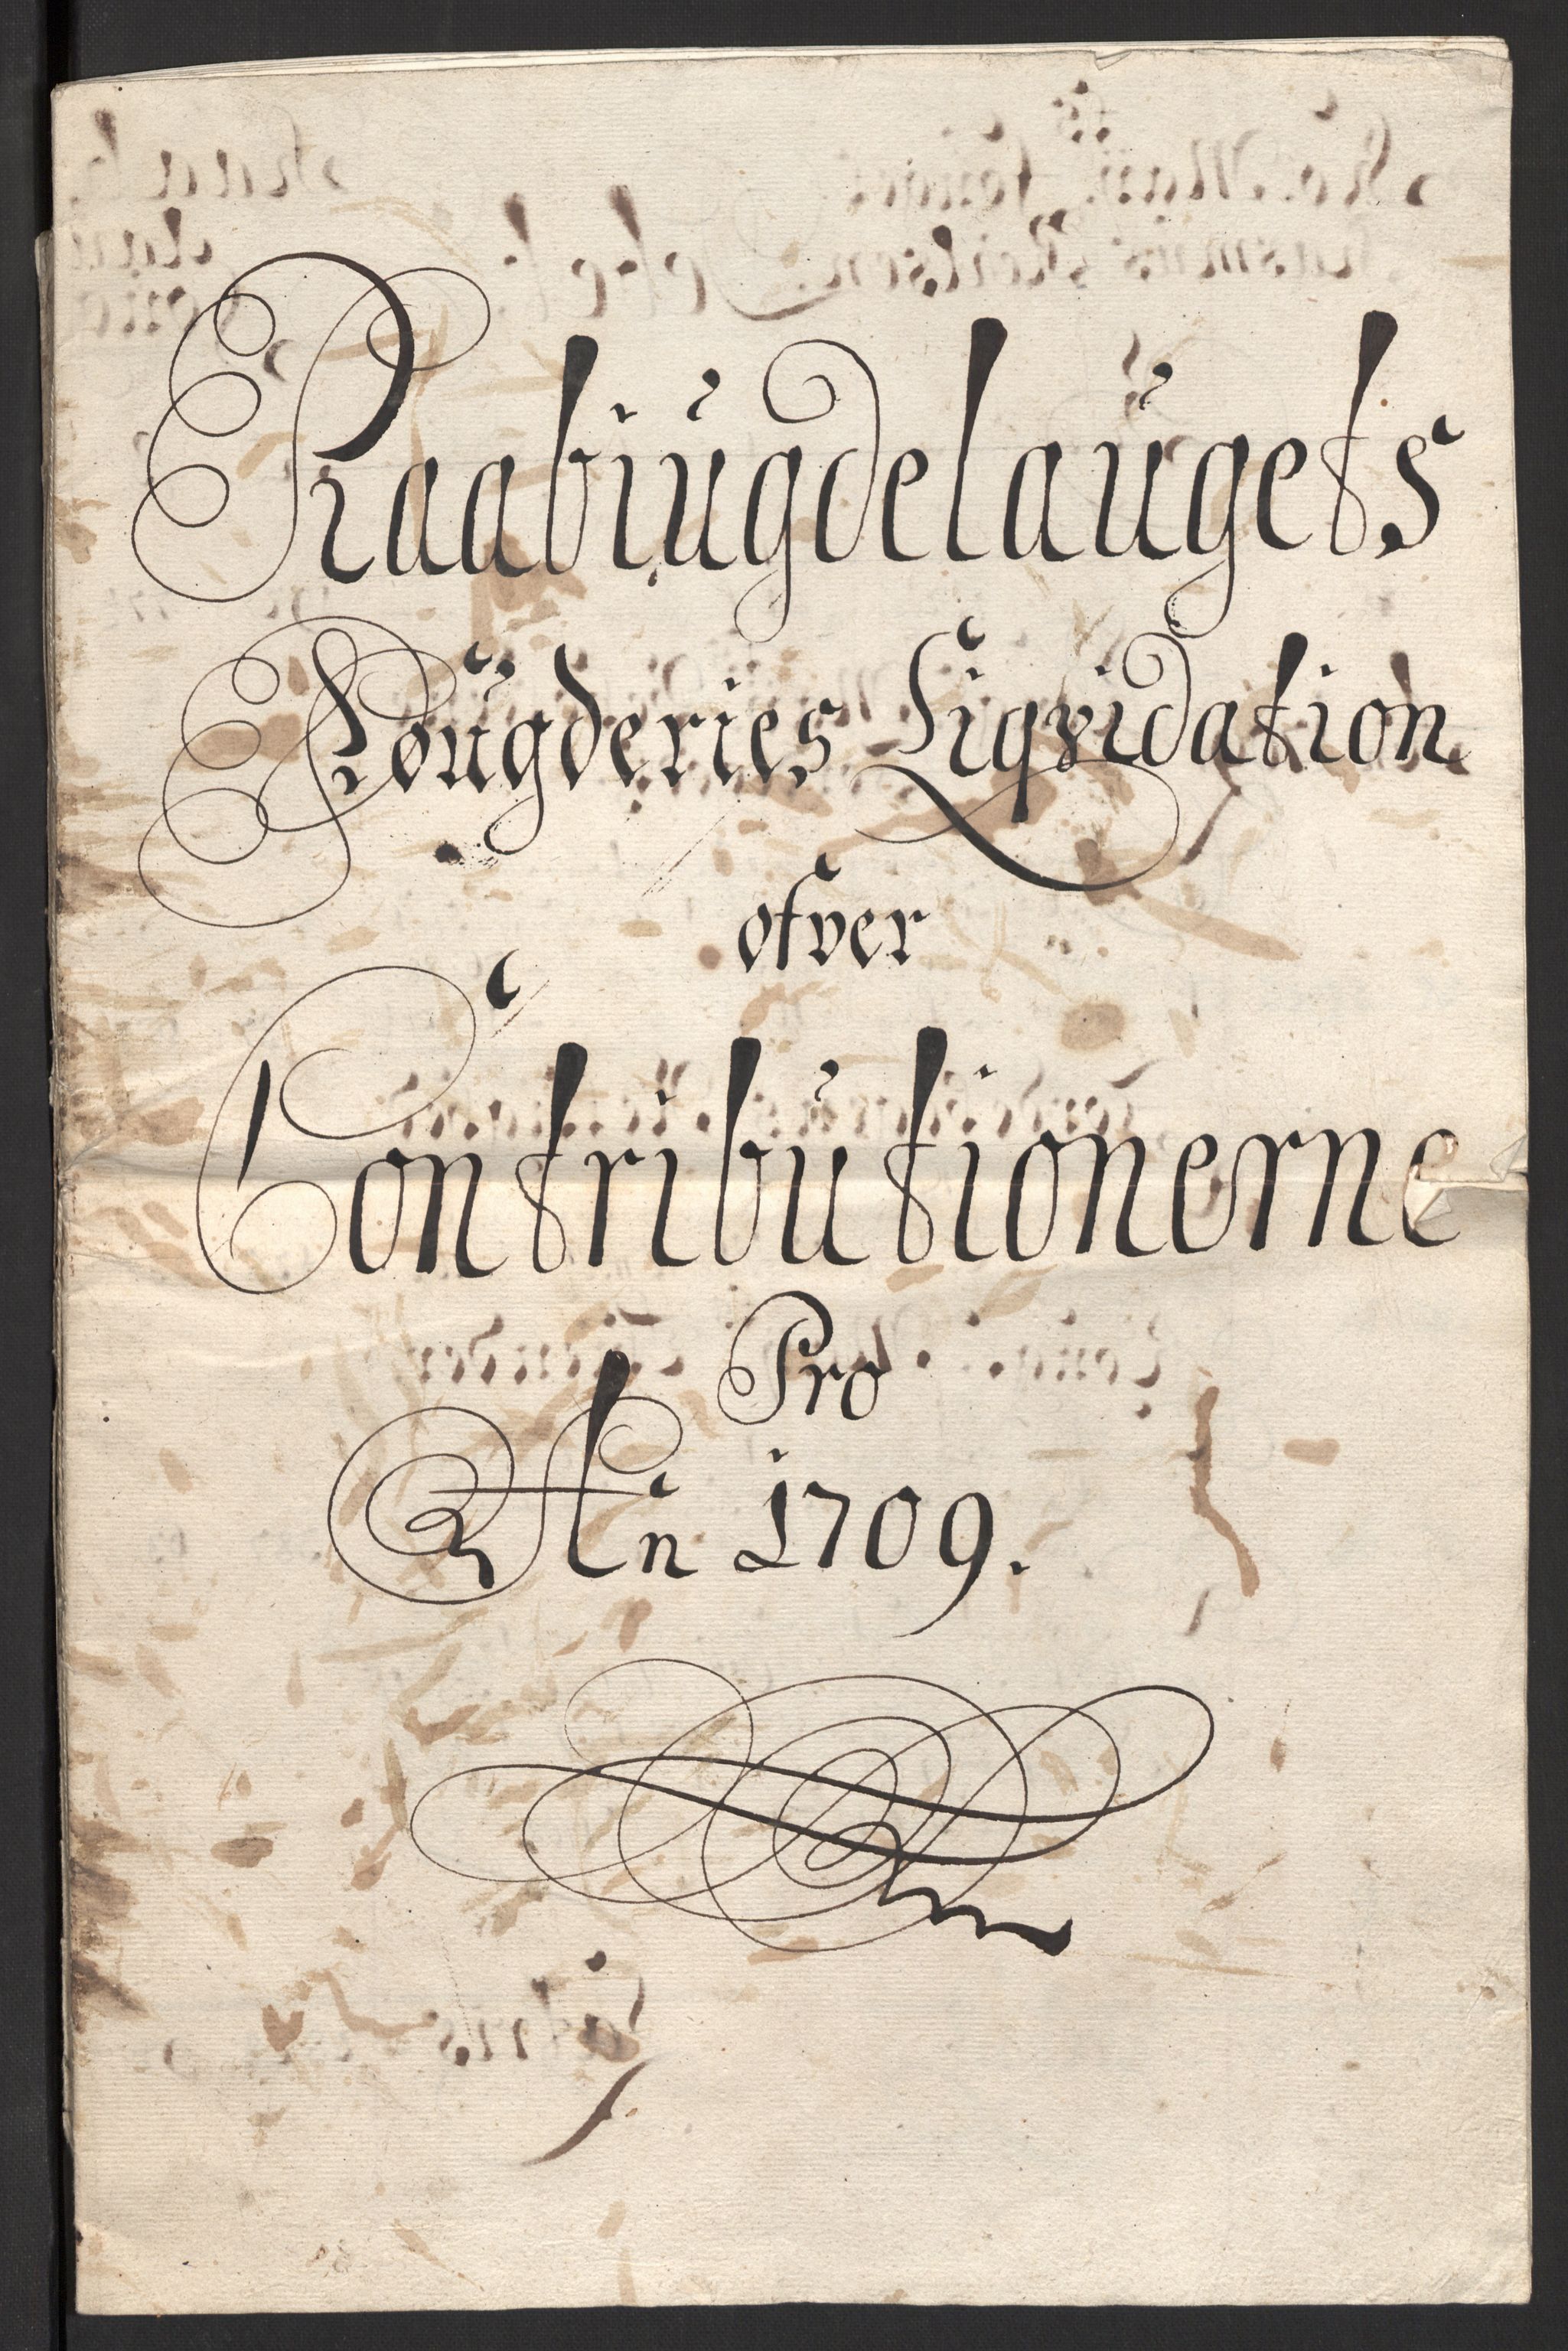 Raabiugdelaugets
Fougderies Liqvidation
ofver
Contributionerne
Pro
An 1709.